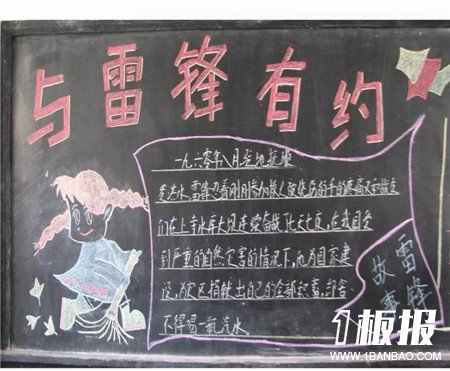 与雷锋有约
一九六零年八月驻地抚顺
发洪水,雷锋忍着刚刚参加救人后的手的疼痛又和战友
们在上寺水库大坝连续奋战七天七夜,在我国受
到严重的自然灾害的情况下,他为国家建
设,为灾区捐献出自己的全部积蓄,却舍
不得喝一瓶汽水
雷锋
故事
1板报
WWW.1BANBAO.COM